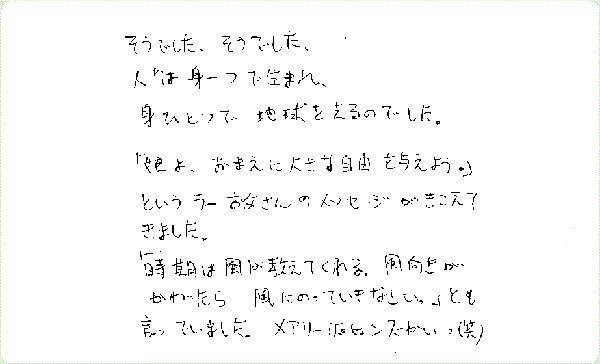 そうでした、そうでした、
人は身一つで生まれ、
身ひとつで 地球を去るのでした。
「娘よ、おまえに大きな自由を与えよう。」
という ラー お父さんのメッセージがきこえて
きました。
「時期は風が教えてくれる。風向きが
かわったら 風にのっていきなさい。」とも
言っていました。メアリーポピンズかいっ(笑)